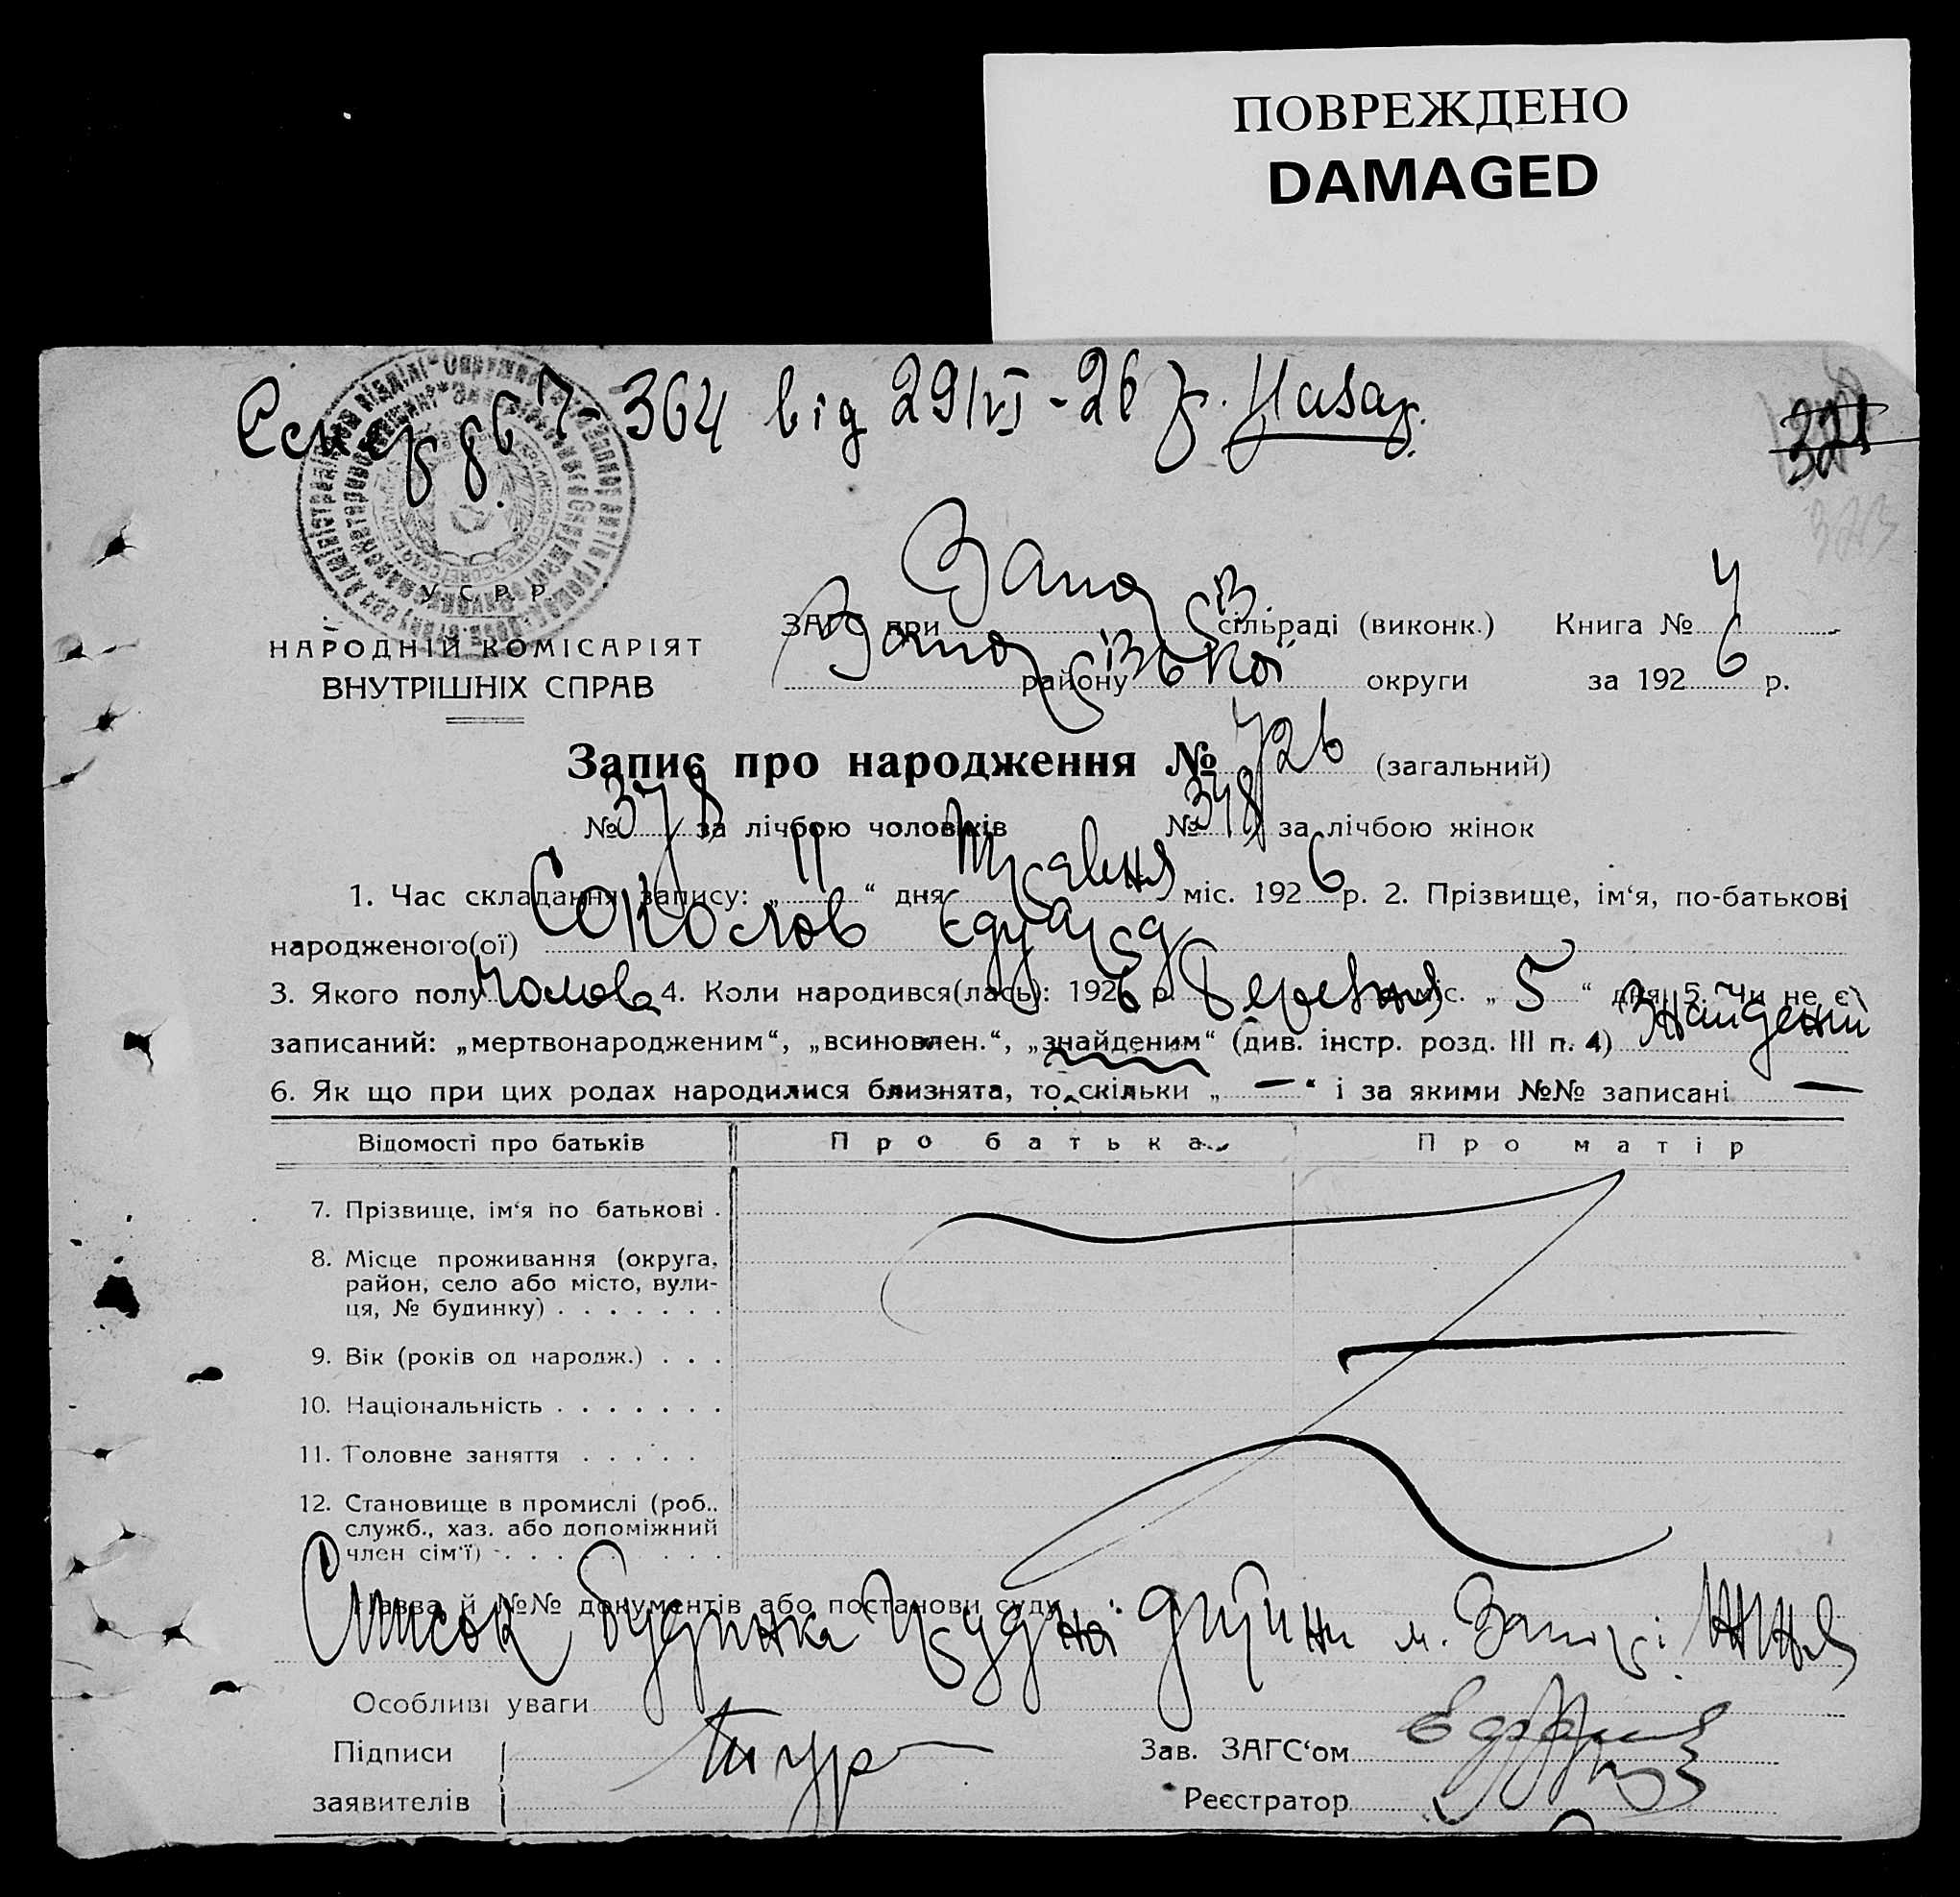 ПОВРЕЖДЕНО
DAMAGED
364 від 29/VI-26 р. Назар.
321
323
У. С. Р. Р.
НАРОДНІЙ КОМІСАРІЯТ
ВНУТРІШНІХ СПРАВ
ЗАГС при Запоріз сільраді (виконк.) Книга № 4
Запорізької району округи за 1926 р.
Запис про народження № 726 (загальний)
№ 378 за лічбою чоловіків № 348 за лічбою жінок
1. Час складання запису: „11“ дня Травня міс. 1926 р. 2. Прізвище, ім‘я, по-батькові
народженого(ої) Соколов Едуард
3. Якого полу Чолов. 4. Коли народився(лась): 1926 р. Березня міс. „5“ дня 5. Чи не є
записаний: „мертвонародженим“, „всиновлен.“, „знайденим“ (див. інстр. розд. III п. 4) Знайдений
6. Як що при цих родах народилися близнята, то скільки „—“ і за якими №№ записані —
Відомості про батьків Про батька Про матір
7. Прізвище, ім‘я по батькові .
8. Місце проживання (округа,
район, село або місто, вули-
ця, № будинку) . . . . . . .
9. Вік (років од народж.) . . .
10. Національність . . . . . . .
11. Головне заняття . . . . .
12. Становище в промислі (роб..
служб., хаз. або допоміжний
член сім‘ї) . . . . . . .
Назва й №№ документів або постанови суду
Список будинка грудної дитини м. Запоріжжя
Особливі уваги
Підписи Зав. ЗАГС‘ом
заявителів Реєстратор